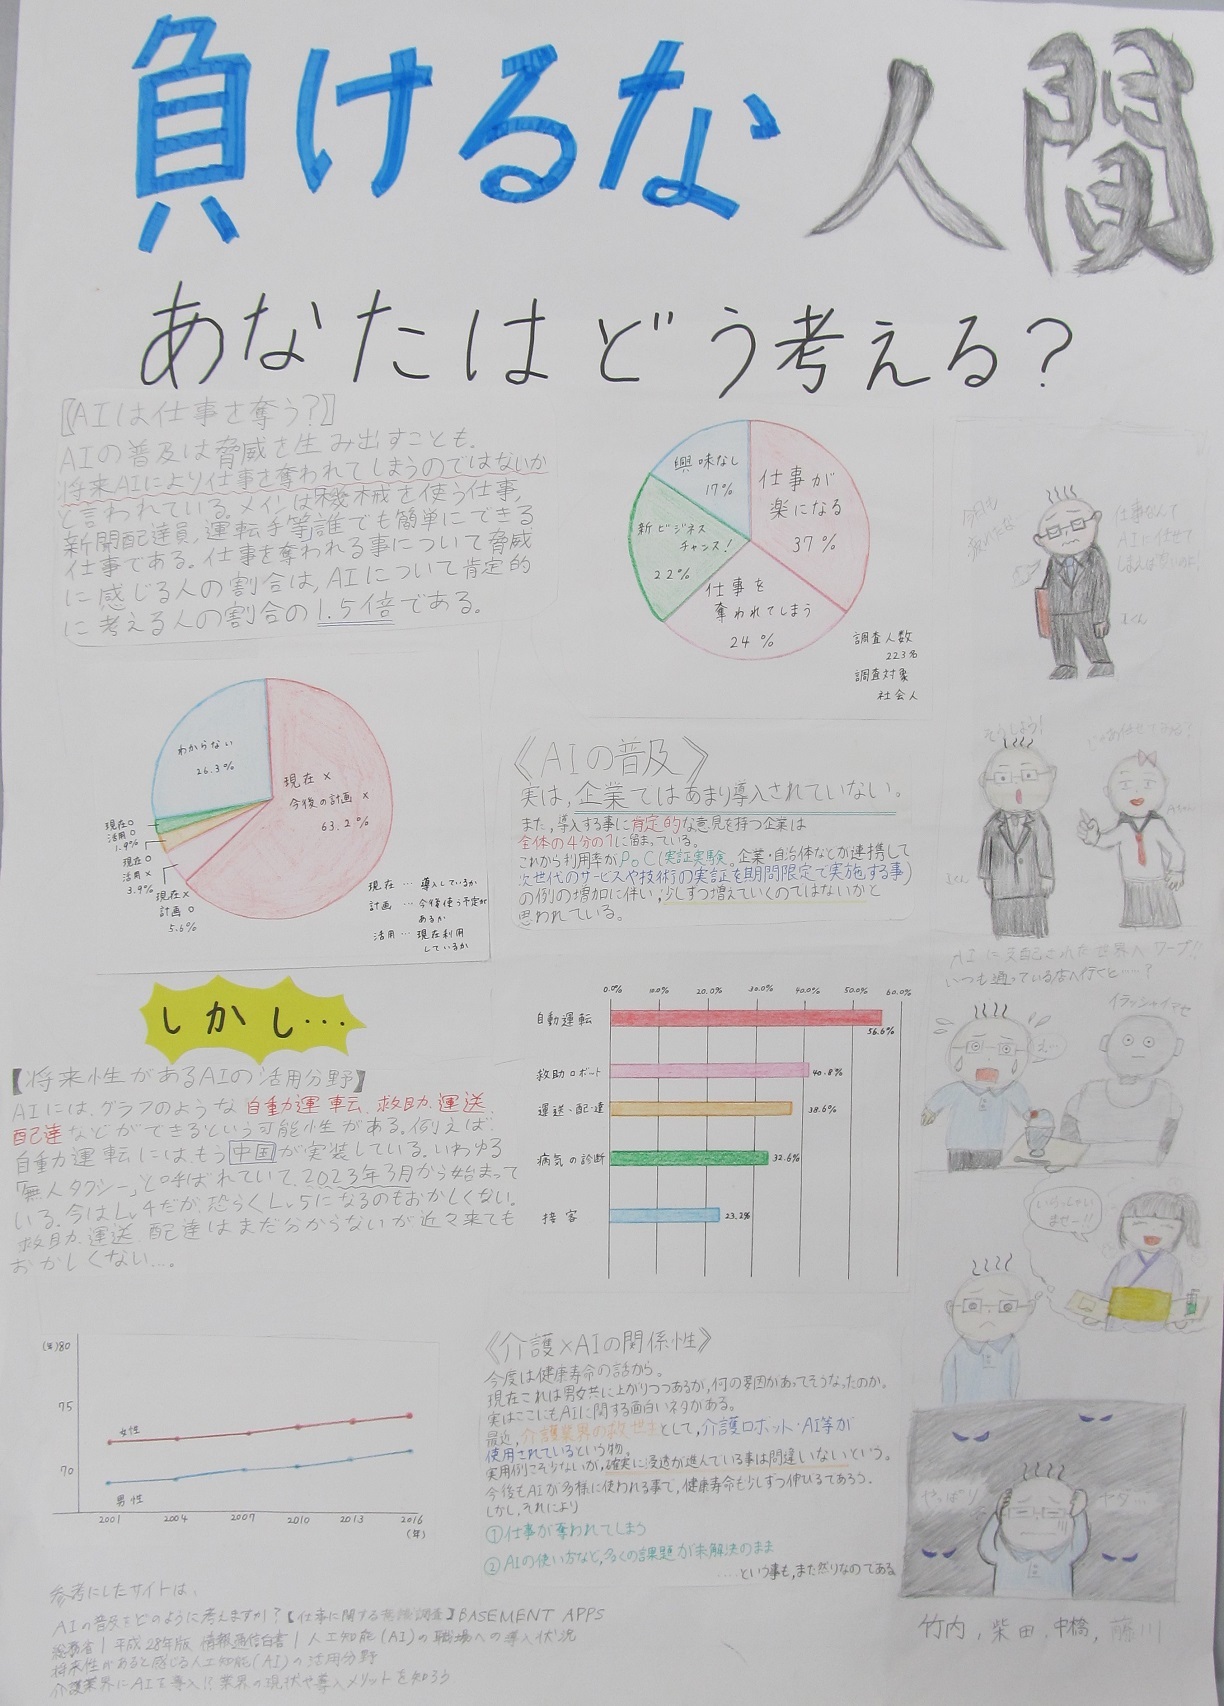 負けるな人間
あなたはどう考える?
【AIは仕事を奪う?】
AIの普及は脅威を生み出すことも。
将来AIにより仕事を奪われてしまうのではないか
と言われている。メインは機械を使う仕事,
新聞配達員,運転手等誰でも簡単にできる
仕事である。仕事を奪われる事について脅威
に感じる人の割合は,AIについて肯定的
に考える人の割合の1.5倍である。
興味なし
17%
仕事が
楽になる
37%
新ビジネス
チャンス!
22%
仕事を
奪われてしまう
24%
調査人数
223名
調査対象
社会人
今日も
疲れたな
仕事なんて
AIに任せて
しまえば良いのに
わからない
26.3%
現在×
今後の計画×
63.2%
現在○
活用○
1.9%
現在○
活用×
3.9%
現在×
計画○
5.6%
現在…導入しているか
計画…今後使う予定が
あるか
活用…現在利用
しているか
《AIの普及》
実は,企業ではあまり導入されていない。
また,導入する事に肯定的な意見を持つ企業は
全体の4分の1に留まっている。
これから利用率がPoC(実証実験。企業・自治体などが連携して
次世代のサービスや技術の実証を期間限定で実施する事)
の例の増加に伴い,少しずつ増えていくのではないかと
思われている。
そうしよう!
じゃあ任せてみる?
AIに支配された世界へワープ!!
いつも通っている店へ行くと……?
しかし…
【将来性があるAIの活用分野】
AIには,グラフのような自動運転,救助,運送,
配達などができるという可能性がある。例えば
自動運転には,もう中国が実装している。いわゆる
「無人タクシー」と呼ばれていて,2023年3月から始まって
いる。今はLv4だが,恐らくLv5になるのもおかしくない。
救助,運送,配達はまだ分からないが近々来ても
おかしくない…。
0.0% 10.0% 20.0% 30.0% 40.0% 50.0% 60.0%
自動運転 56.6%
救助ロボット 40.8%
運送・配達 38.6%
病気の診断 32.6%
接客 23.2%
イラッシャイマセ
え…
いらっしゃい
ませー!!
(年)80
75
70
女性
男性
2001 2004 2007 2010 2013 2016
(年)
《介護×AIの関係性》
今度は健康寿命の話から。
現在これは男女共に上がりつつあるが,何の要因があってそうなったのか。
実はここにもAIに関する面白いネタがある。
最近,介護業界の救世主として,介護ロボット・AI等が
使用されているという物。
実用例こそ少ないが,確実に浸透が進んでいる事は間違いないという。
今後もAIが多様に使われる事で,健康寿命も少しずつ伸びるであろう。
しかし,それにより
①仕事が奪われてしまう
②AIの使い方など,多くの課題が未解決のまま
……という事も,また然りなのである
やっぱり
ヤダ…
参考にしたサイトは,
AIの普及をどのように考えますか?【仕事に関する意識調査】BASEMENT APPS
総務省|平成28年版 情報通信白書|人工知能(AI)の職場への導入状況
将来性があると感じる人工知能(AI)の活用分野
介護業界にAIを導入!?業界の現状や導入メリットを知ろう
竹内,柴田,中橋,藤川